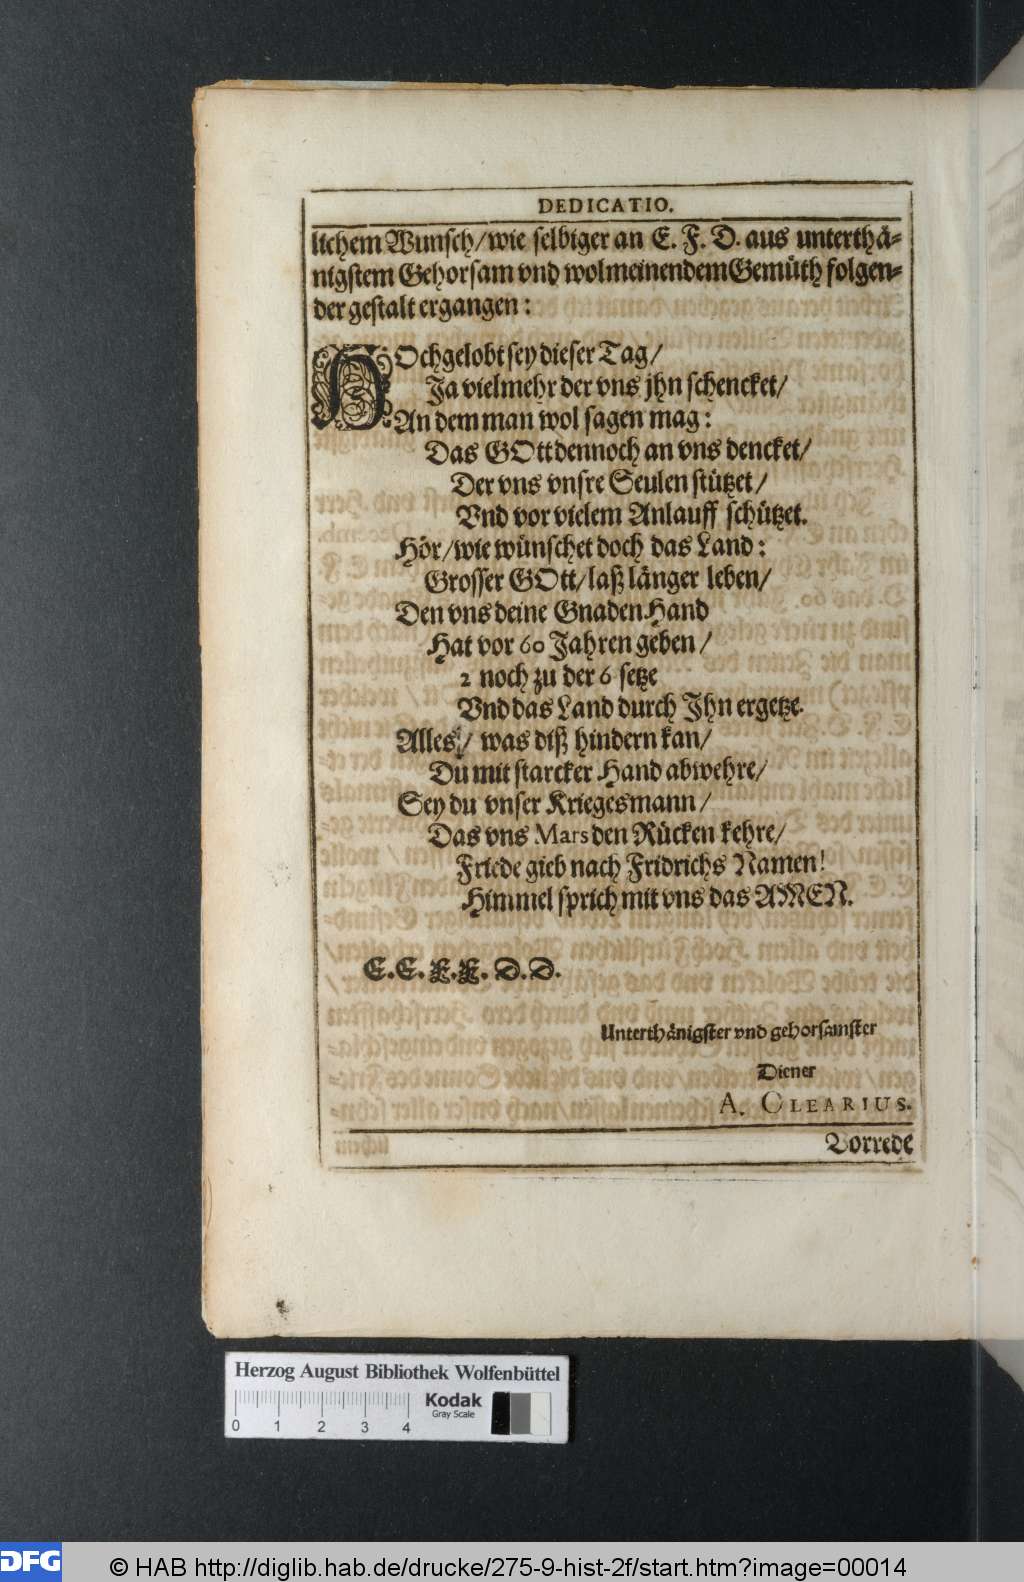 DEDICATIO.
lichem Wunsch/ wie selbiger an E. F. D. aus unterthä-
nigstem Gehorsam vnd wolmeinendem Gemüth folgen-
der gestalt ergangen:
HOchgelobt sey dieser Tag/
Ja vielmehr der vns jhn schencket/
An dem man wol sagen mag:
Das GOtt dennoch an vns dencket/
Der vns vnsre Seulen stützet/
Vnd vor vielem Anlauff schützet.
Hör/ wie wünschet doch das Land:
Grosser GOtt/ laß länger leben/
Den vns deine Gnaden Hand
Hat vor 60 Jahren geben/
2 noch zu der 6 setze
Vnd das Land durch Jhn ergetze.
Alles/ was diß hindern kan/
Du mit starcker Hand abwehre/
Sey du vnser Kriegesmann/
Das vns Mars den Rücken kehre/
Friede gieb nach Fridrichs Namen!
Himmel sprich mit vns das AMEN.
E. E. F. F. D. D.
Unterthänigster vnd gehorsamster
Diener
A. OLEARIUS.
Vorrede
Herzog August Bibliothek Wolfenbüttel
Kodak
Gray Scale
0 1 2 3 4
DFG
© HAB http://diglib.hab.de/drucke/275-9-hist-2f/start.htm?image=00014